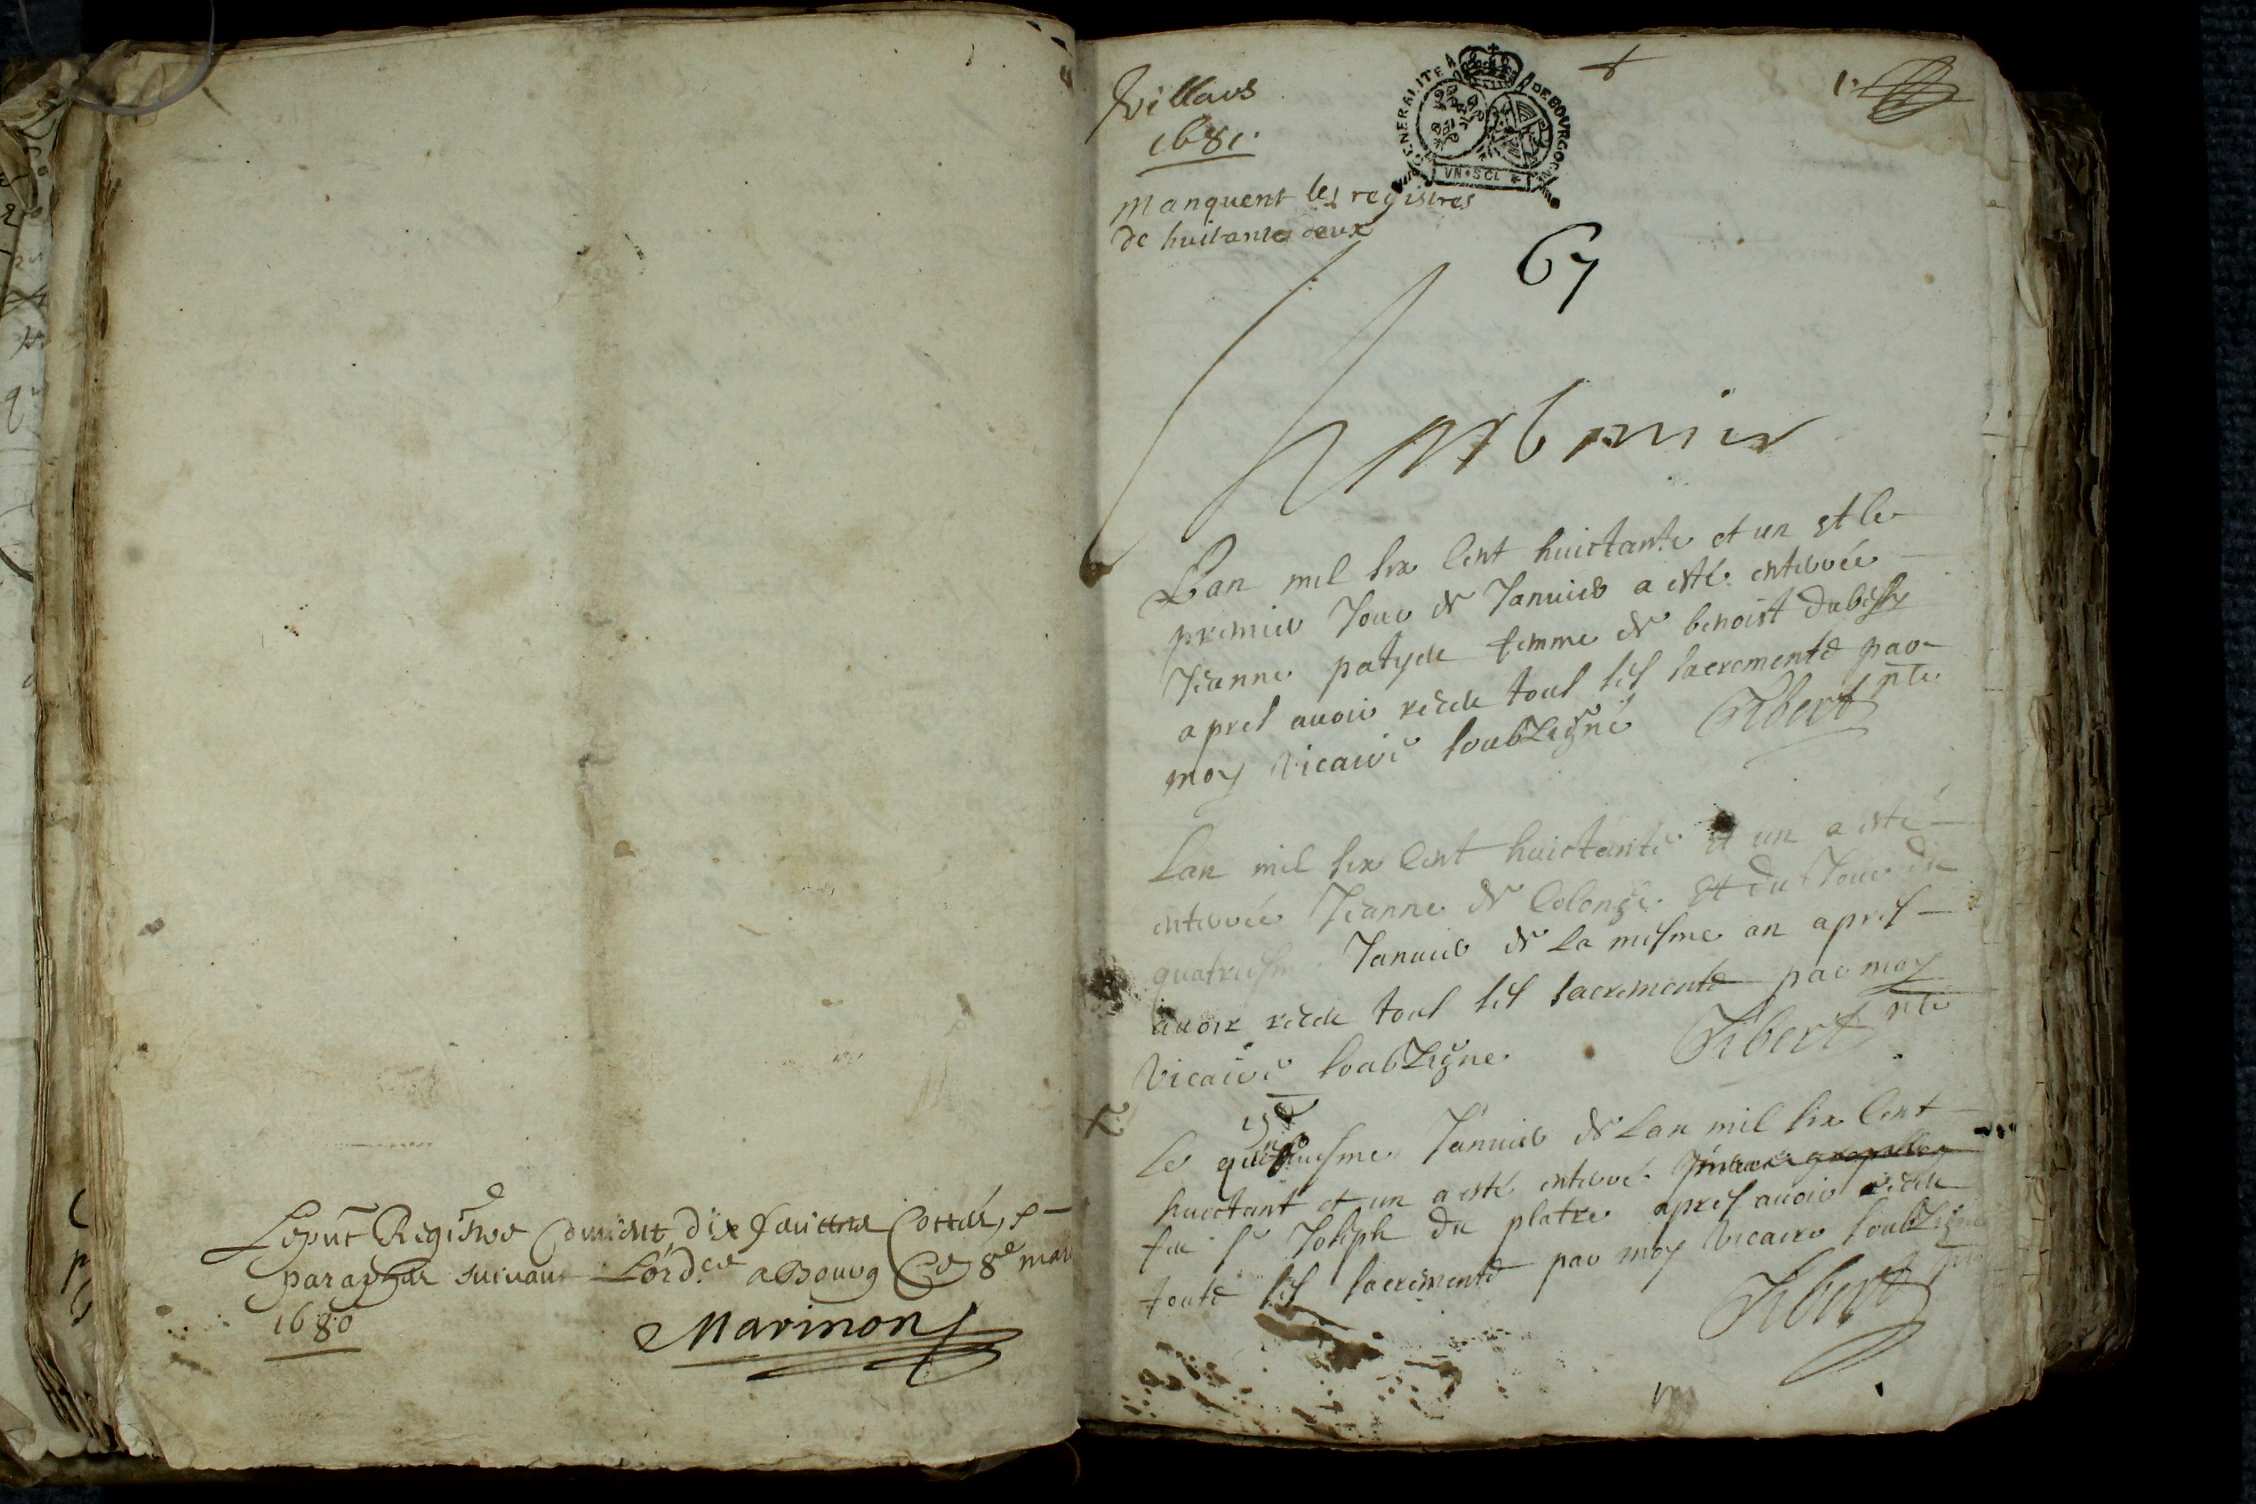 Le pnt Registre Contient dix feuilletz Cottés, &
paraphés suivant L'ordce a Bourg Ce 8e mars
1680
Marinon
Villars
1681.
GENERALITE DE BOURGOGNE
VN SOL
Manquent les registres
de huitante deux
67
1.
Lan mil six Cent huictante et un et le
premier Jour de Janvier a esté enterrée
Jeanne femme de benoist
apres avoir receu tous ses sacrements par
moy Vicaire soubsigné Gibert ptre
Lan mil six Cent huictante et un a esté
enterrée Jeanne de Colonge et du Jour du
quatriesme Janvier de la mesme an apres
avoir receu tous ses sacrements par moy
Vicaire soubsigne Gibert ptre
15e
Le quinsiesme Janvier de Lan mil six Cent
huictant et un a esté enterré
feu Sr Joseph du platre apres avoir receu
touts ses sacrements par moy Vicaire soubsigné
Gibert ptre